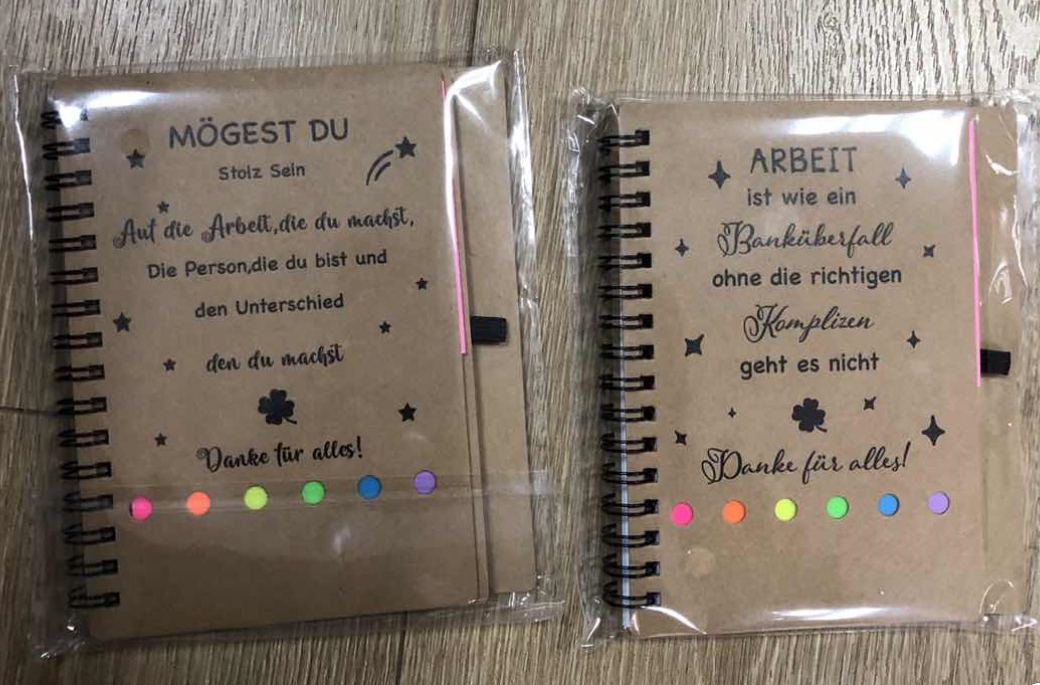 MÖGEST DU
Stolz Sein
Auf die Arbeit,die du machst,
Die Person,die du bist und
den Unterschied
den du machst
Danke für alles!
ARBEIT
ist wie ein
Banküberfall
ohne die richtigen
Komplizen
geht es nicht
Danke für alles!